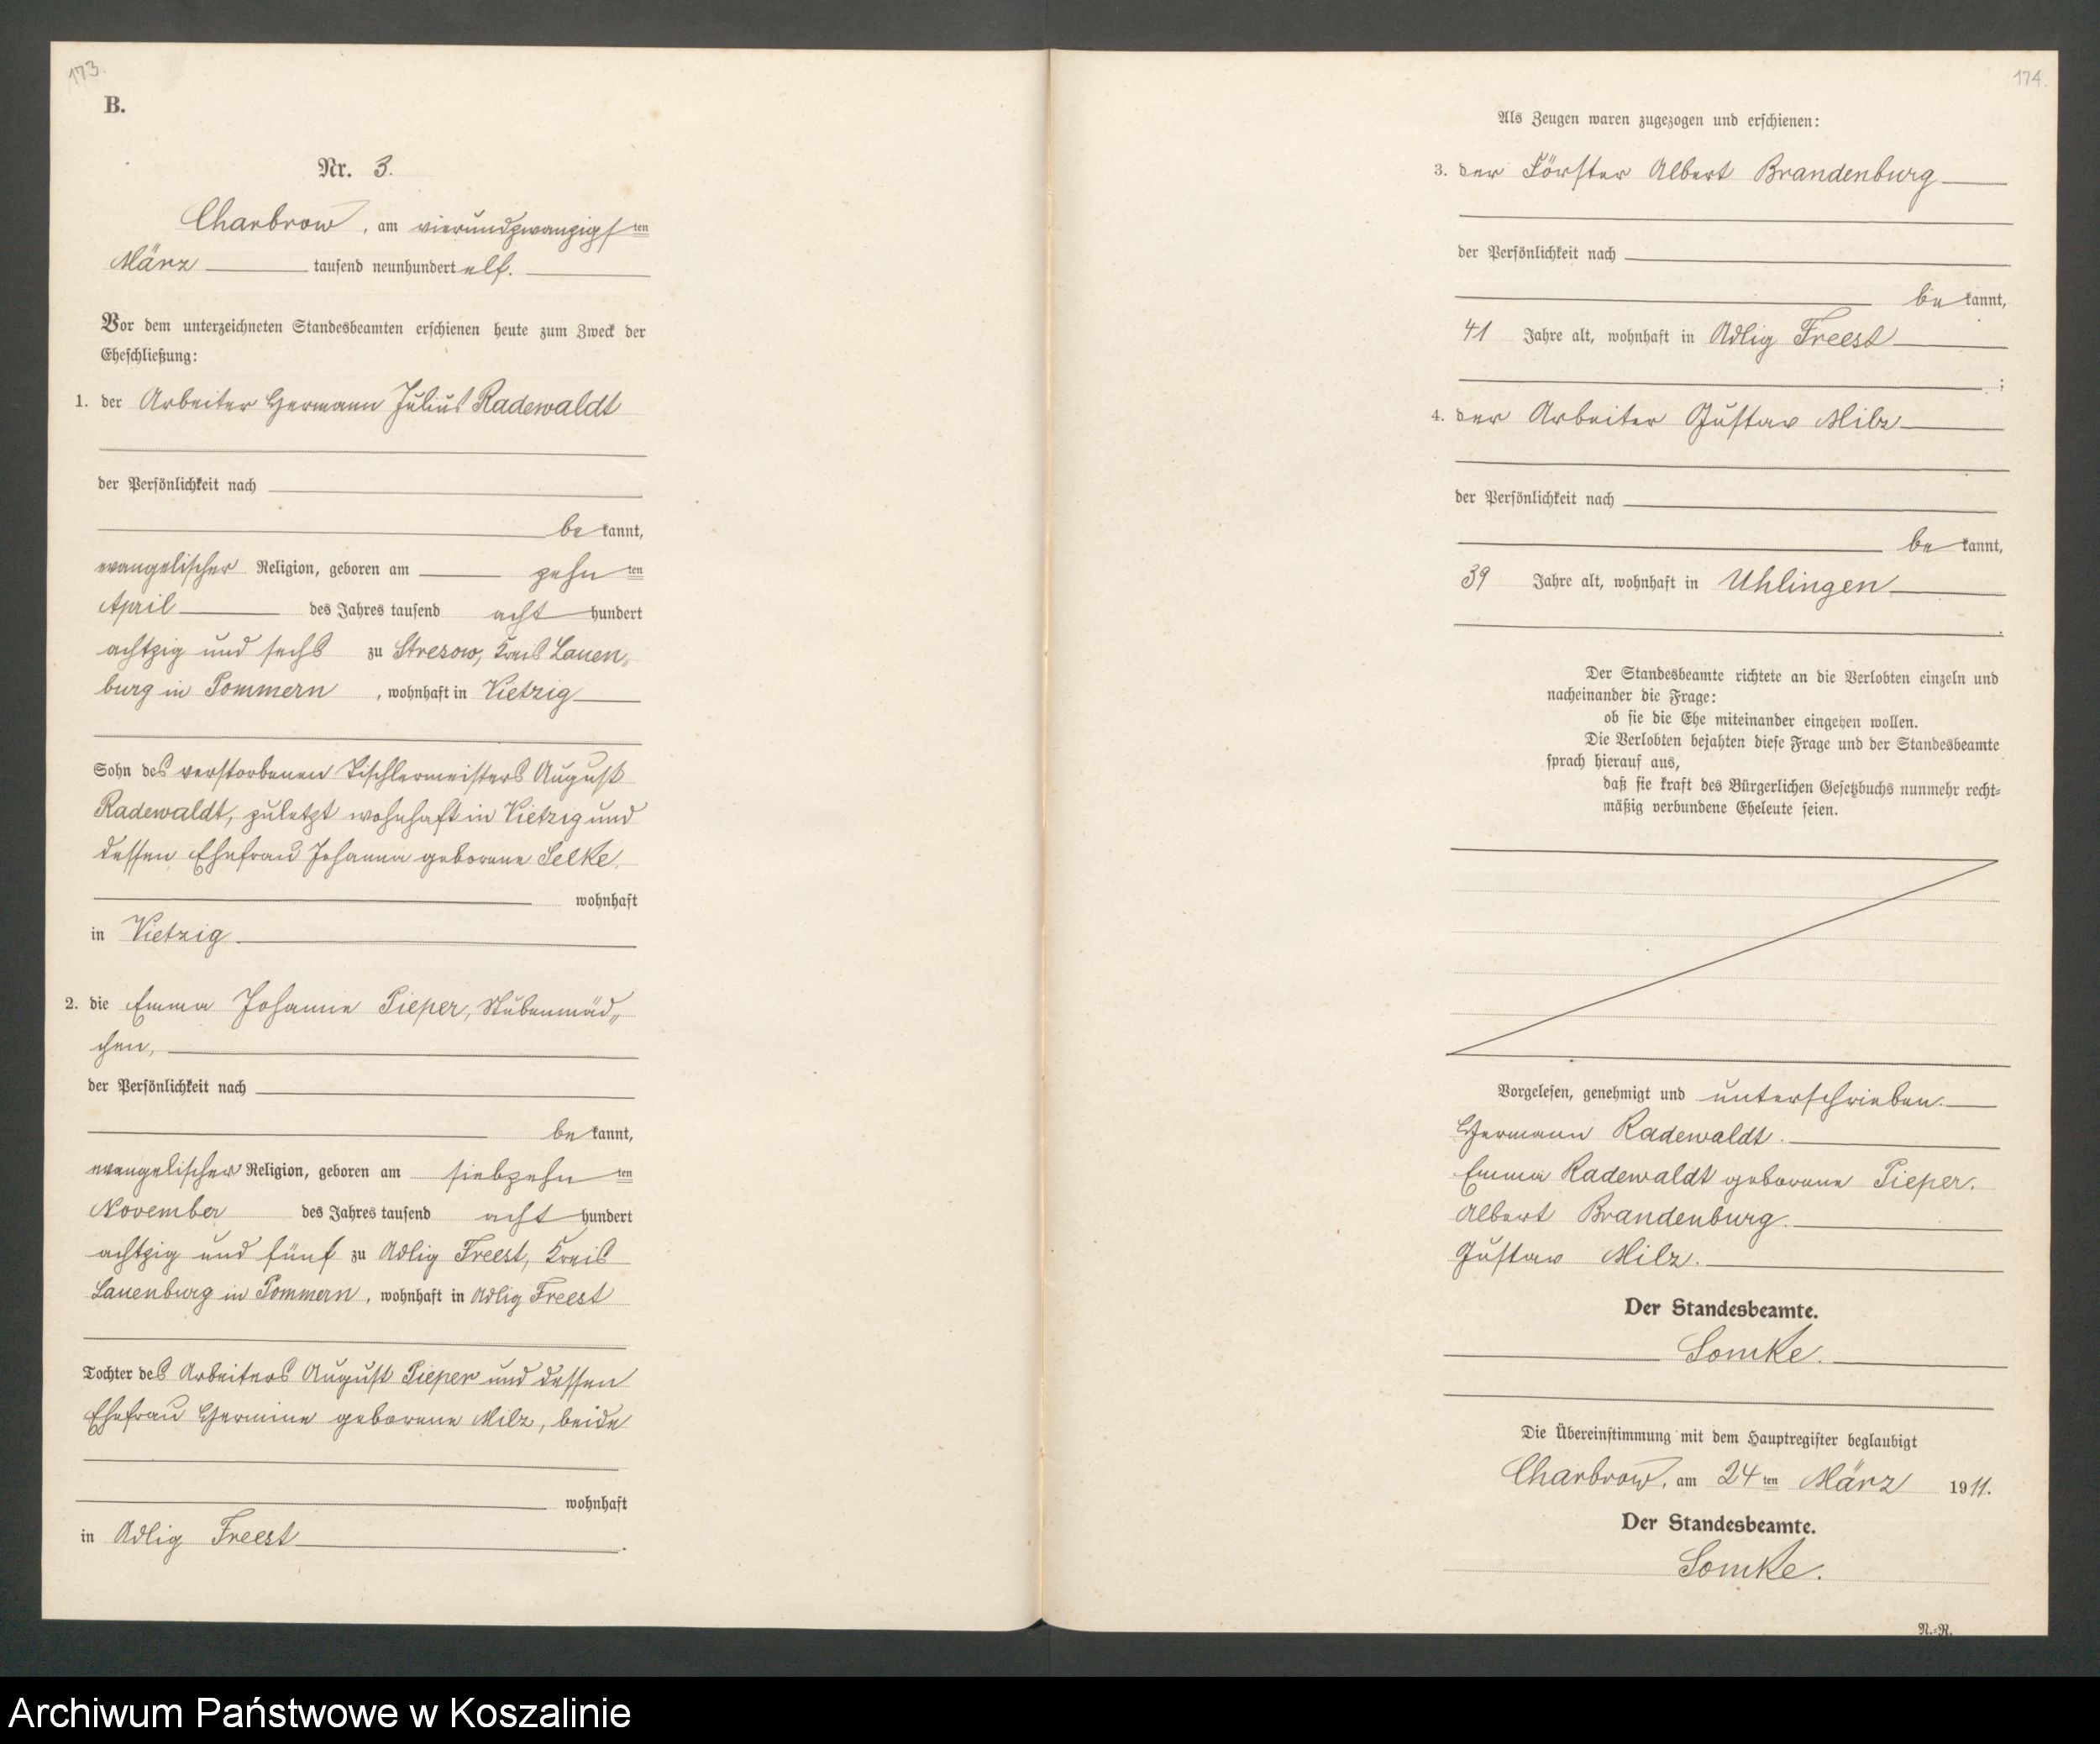 173.
B.
Nr. 3.
Charbrow, am vierundzwanzigsten
März tausend neunhundert elf.
Vor dem unterzeichneten Standesbeamten erschienen heute zum Zweck der
Eheschließung:
1. der Arbeiter Hermann Julius Radewaldt
der Persönlichkeit nach
be kannt,
evangelischer Religion, geboren am zehn ten
April des Jahres tausend acht hundert
achtzig und sechs zu Stresow, Kreis Lauen„
burg in Pommern, wohnhaft in Vietzig
Sohn des verstorbenen Tischlermeisters August
Radewaldt, zuletzt wohnhaft in Vietzig und
dessen Ehefrau Johanna geborene Selke,
wohnhaft
in Vietzig
2. die Emma Johanne Pieper, Stubenmäd„
chen,
der Persönlichkeit nach
be kannt,
evangelischer Religion, geboren am siebzehn ten
November des Jahres tausend acht hundert
achtzig und fünf zu Adlig Freest, Kreis
Lauenburg in Pommern, wohnhaft in Adlig Freest
Tochter des Arbeiters August Pieper und dessen
Ehefrau Hermine geborene Milz, beide
wohnhaft
in Adlig Freest.
174.
Als Zeugen waren zugezogen und erschienen:
3. der Förster Albert Brandenburg
der Persönlichkeit nach
be kannt,
41 Jahre alt, wohnhaft in Adlig Freest
;
4. der Arbeiter Gustav Milz
der Persönlichkeit nach
be kannt,
39 Jahre alt, wohnhaft in Uhlingen
.
Der Standesbeamte richtete an die Verlobten einzeln und
nacheinander die Frage:
ob sie die Ehe miteinander eingehen wollen.
Die Verlobten bejahten diese Frage und der Standesbeamte
sprach hierauf aus,
daß sie kraft des Bürgerlichen Gesetzbuchs nunmehr recht-
mäßig verbundene Eheleute seien.
Vorgelesen, genehmigt und unterschrieben.
Hermann Radewaldt.
Emma Radewaldt geborene Pieper.
Albert Brandenburg.
Gustav Milz.
Der Standesbeamte.
Die Übereinstimmung mit dem Hauptregister beglaubigt
Charbrow, am 24 ten März 1911.
Der Standesbeamte.
N.-R.
Archiwum Państwowe w Koszalinie